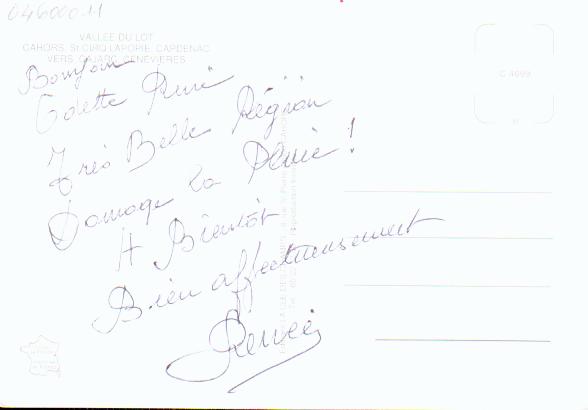 046000.11
VALLÉE DU LOT
CAHORS, St CIRQ LAPOPIE, CAPDENAC
VERS, CAJARC, GENEVIERES
C 4699
Bonjour
Odette René
Très Belle Région
Domage la Pluie !
A Bientôt
Bien affectueusement
Renée